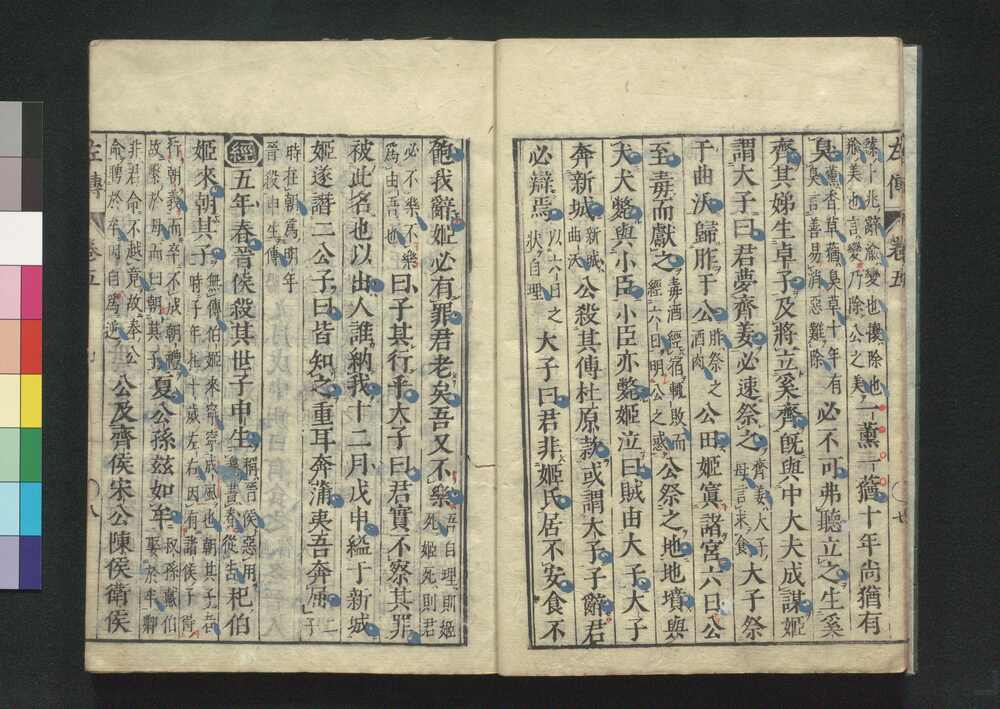 左傳 卷五 ○七
繇卜兆辭渝變也攘除也
羭美也言變乃除公之美
一薰一蕕十年尚猶有
臭
薰香草蕕臭草十年有
臭言善易消惡難除
必不可弗聽立之生奚
齊其娣生卓子及將立奚齊既與中大夫成謀姬
謂大子曰君夢齊姜必速祭之
齊姜大子
母言求食
大子祭
于曲沃歸胙于公
胙祭之
酒肉
公田姬寘諸宮六日公
至毒而獻之
毒酒經宿輒敗而
經六日明公之惑
公祭之地地墳與
犬犬斃與小臣小臣亦斃姬泣曰賊由大子大子
奔新城
新城
曲沃
公殺其傅杜原款或謂大子子辭君
必辯焉
以六日之
狀自理
大子曰君非姬氏居不安食不
飽我辭姬必有罪君老矣吾又不樂
吾自理則姬
死姬死則君
必不樂不樂
爲由吾也
曰子其行乎大子曰君實不察其罪
被此名也以出人誰納我十二月戊申縊于新城
姬遂譖二公子曰皆知之重耳奔蒲夷吾奔屈
二
子
時在朝爲明年
晉殺申生傳
經五年春晉侯殺其世子申生
稱晉侯惡用
讒書春從告
杞伯
姬來朝其子
無傳伯姬來寧寧成風也朝其子者
時子年在十歲左右因有諸侯子得
行朝義而卒不成朝禮
故繫於母而曰朝其子
夏公孫茲如牟
叔孫戴伯
娶於牟卿
非君命不越竟故奉公
命聘於牟因自爲逆
公及齊侯宋公陳侯衛侯
左傳 卷五 ○八